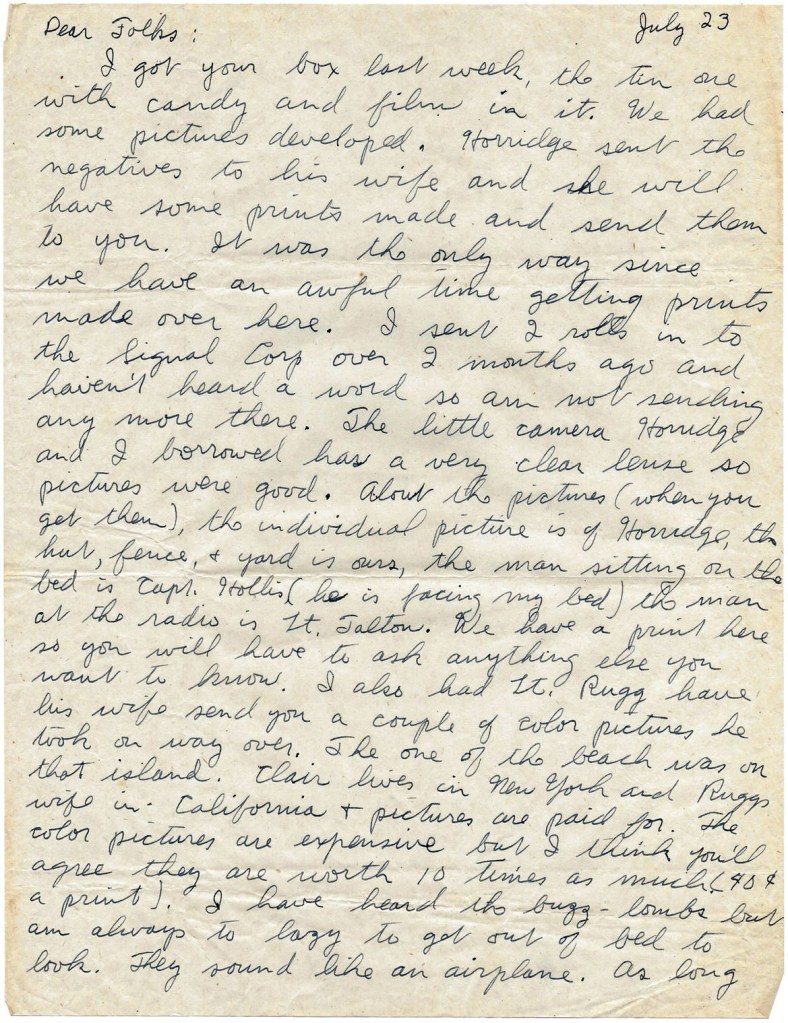 Dear Folks: July 23
I got your box last week, the tin one
with candy and film in it. We had
some pictures developed. Horridge sent the
negatives to his wife and she will
have some prints made and send them
to you. It was the only way since
we have an awful time getting prints
made over here. I sent 2 rolls in to
the Signal Corp over 2 months ago and
haven't heard a word so am not sending
any more there. The little camera Horridge
and I borrowed has a very clear lense so
pictures were good. About the pictures (when you
get them), the individual picture is of Horridge, the
hut, fence, & yard is ours, the man sitting on the
bed is Capt. Hollis (he is facing my bed) the man
at the radio is Lt. Talton. We have a print here
so you will have to ask anything else you
want to know. I also had Lt. Rugg have
his wife send you a couple of color pictures he
took on way over. The one of the beach was on
that island. Clair lives in New York and Ruggs
wife in California & pictures are paid for. The
color pictures are expensive but I think you'll
agree they are worth 10 times as much (40¢
a print). I have heard the buzz-bombs but
am always to lazy to get out of bed to
look. They sound like an airplane. As long